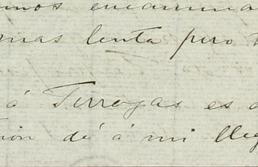 mos encamina
mas lenta pero t
á Terroyas es d
ción dé á mi lleg